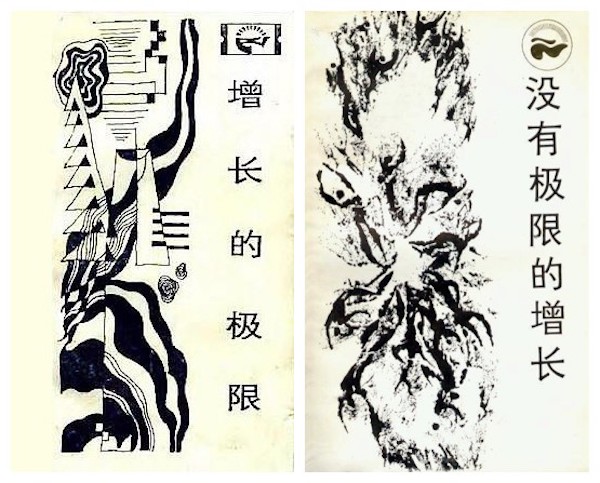 增长的极限
没有极限的增长